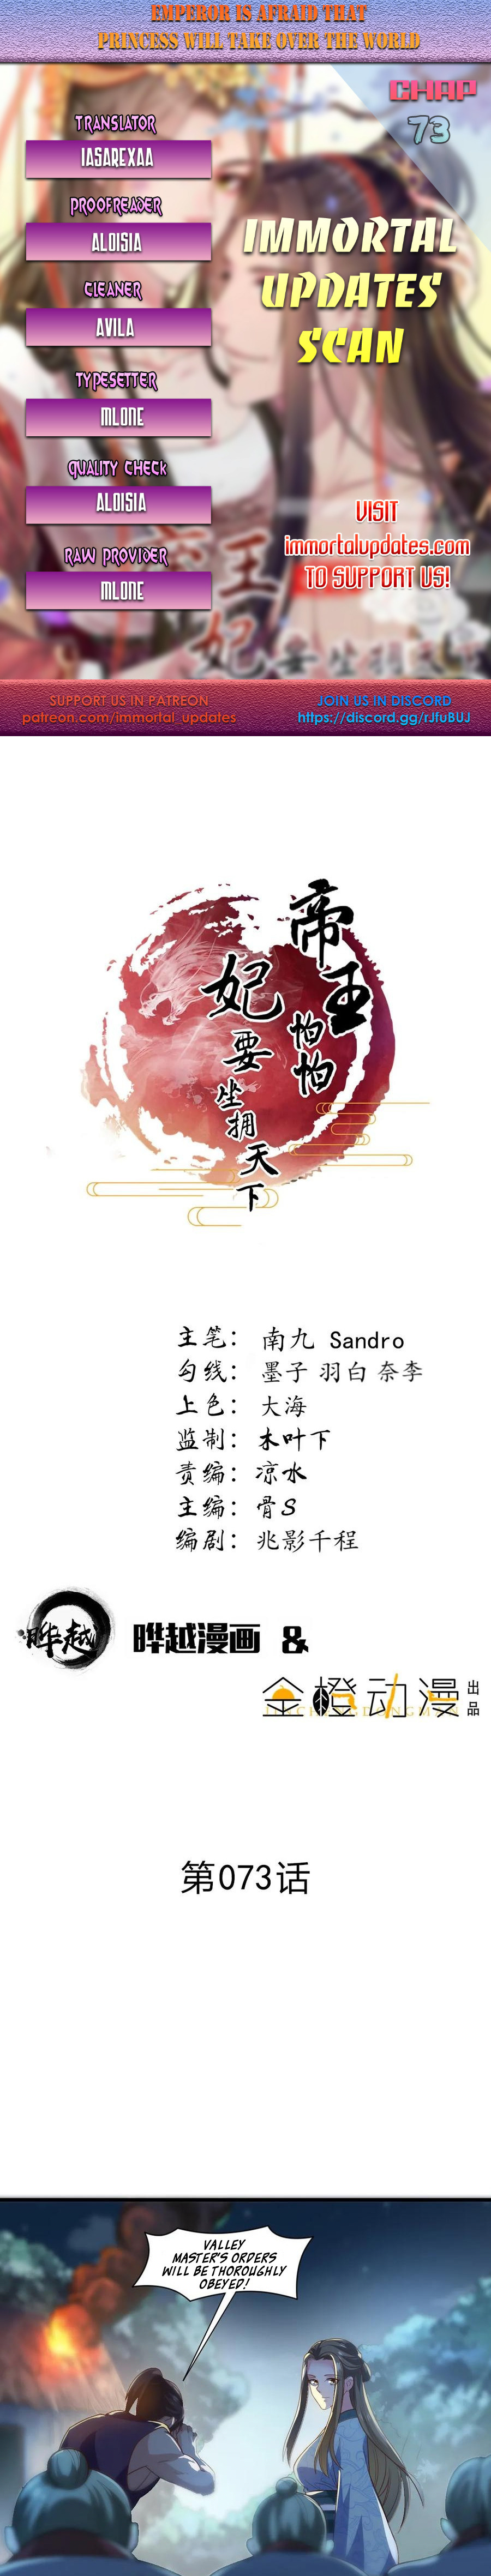 EMPEROR IS AFRAID THAT
PRINCESS WILL TAKE OVER THE WORLD
CHAP
73
TRANSLATOR
IASAREXAA
PROOFREADER
ALOISIA
CLEANER
AVILA
TYPESETTER
MLONE
QUALITY CHECK
ALOISIA
RAW PROVIDER
MLONE
IMMORTAL
UPDATES
SCAN
VISIT
immortalupdates.com
TO SUPPORT US!
SUPPORT US IN PATREON
patreon.com/immortal_updates
JOIN US IN DISCORD
https://discord.gg/rJfuBUJ
帝王怕怕
妃要坐拥天下
主笔：南九 Sandro
勾线：墨子 羽白 奈李
上色：大海
监制：木叶下
责编：凉水
主编：骨S
编剧：兆影千程
晔越
晔越漫画 &
金橙动漫 出品
第073话
VALLEY
MASTER'S ORDERS
WILL BE THOROUGHLY
OBEYED!